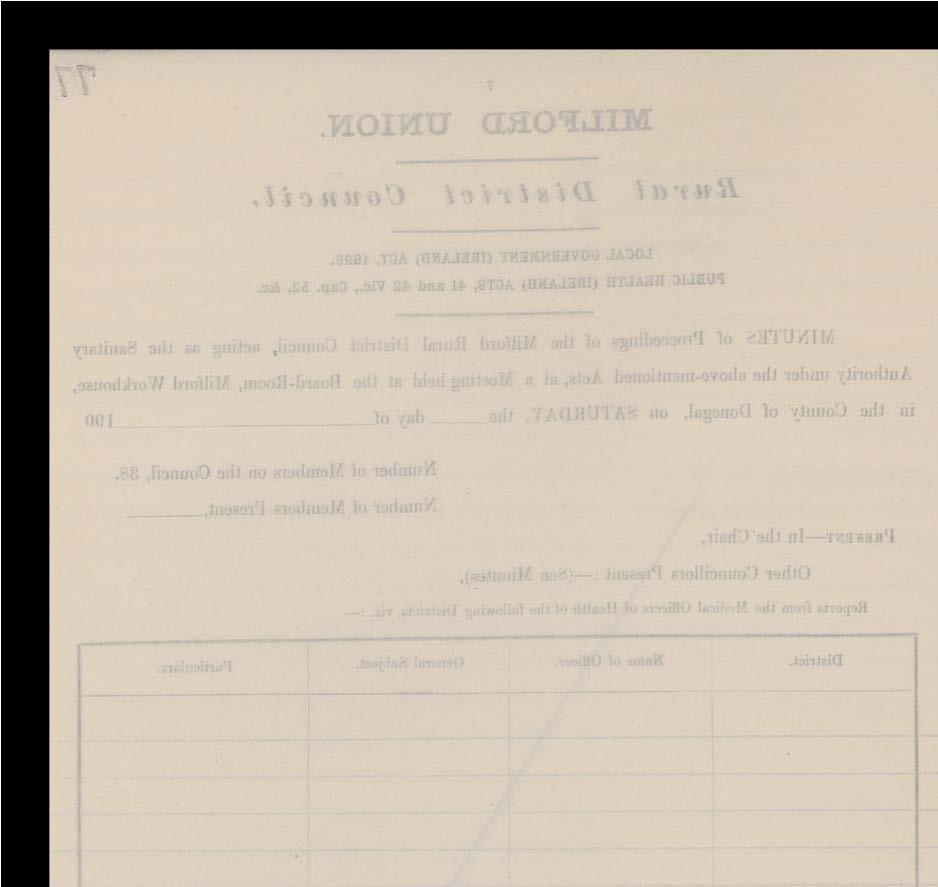 77
7
MILFORD UNION.
Rural District Council.
LOCAL GOVERNMENT (IRELAND) ACT, 1898.
PUBLIC HEALTH (IRELAND) ACTS, 41 and 42 Vic., Cap. 52, &c.
MINUTES of Proceedings of the Milford Rural District Council, acting as the Sanitary
Authority under the above-mentioned Acts, at a Meeting held at the Board-Room, Milford Workhouse,
in the County of Donegal, on SATURDAY, the day of 190
Number of Members on the Council, 38.
Number of Members Present,
PRESENT—In the Chair,
Other Councillors Present :—(See Minutes).
Reports from the Medical Officers of Health of the following Districts, viz. :—
District. Name of Officer. General Subject. Particulars.